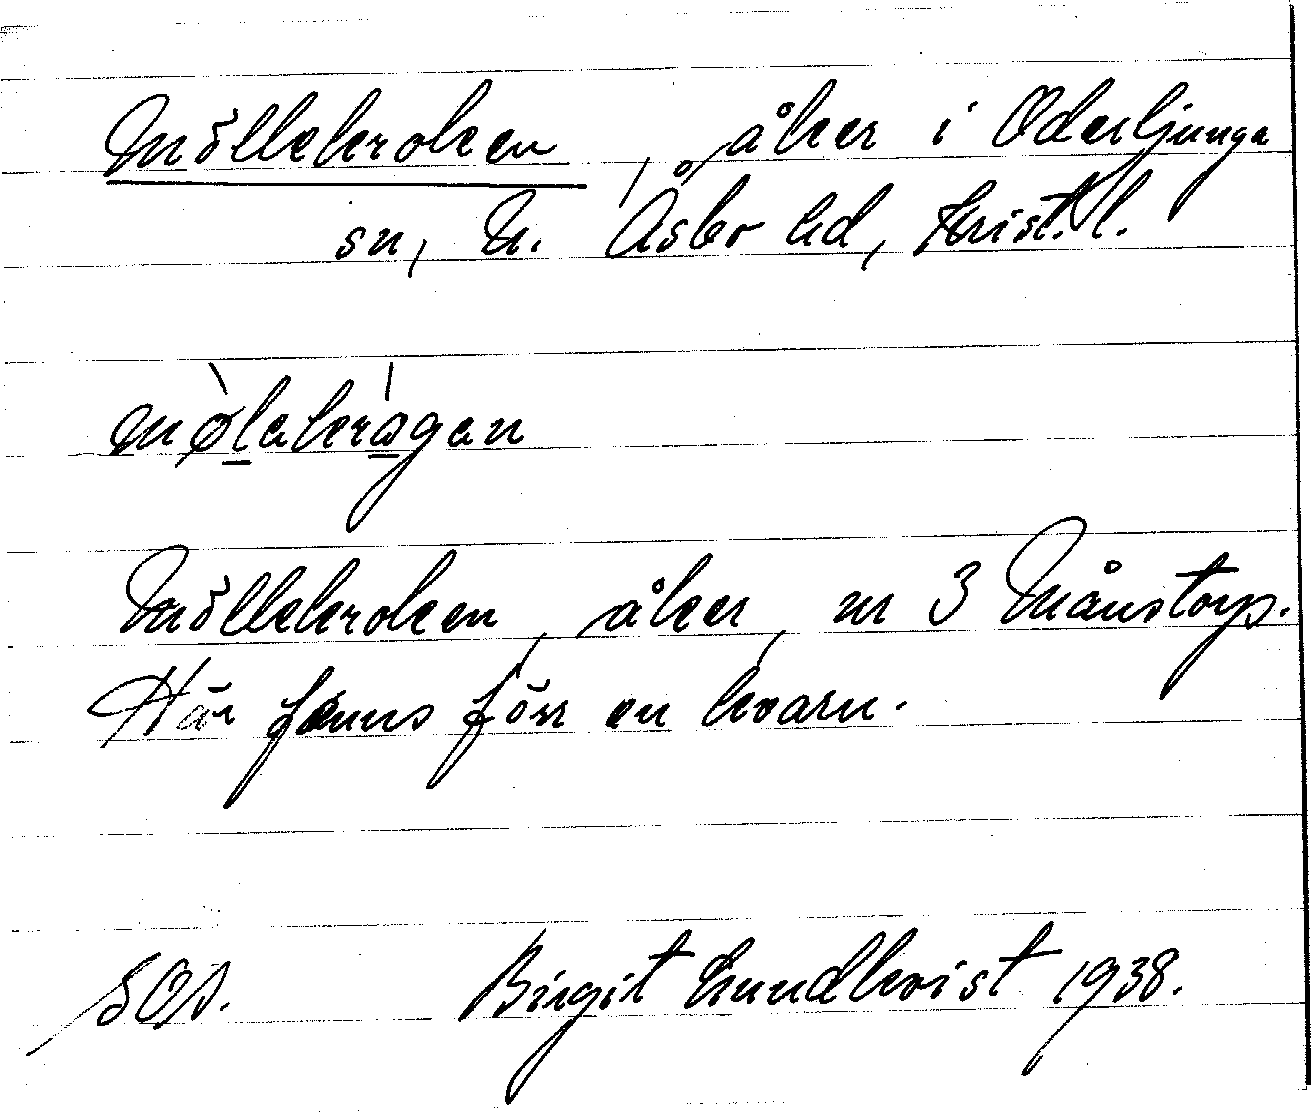 Möllekroken, åker i Oderljunga
sn, N. Åsbo hd, Krist. l.
mølakrågan
Möllekroken, åker, nr 3 Månstorp.
Här fanns förr en kvarn.
SOA. Birgit Lundkvist 1938.